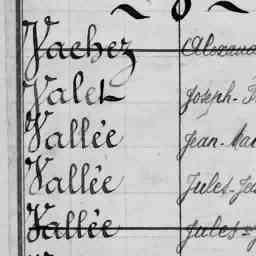 Vachez
Valet Joseph-
Vallée Jean-
Vallée Jules-
Vallée Jules-